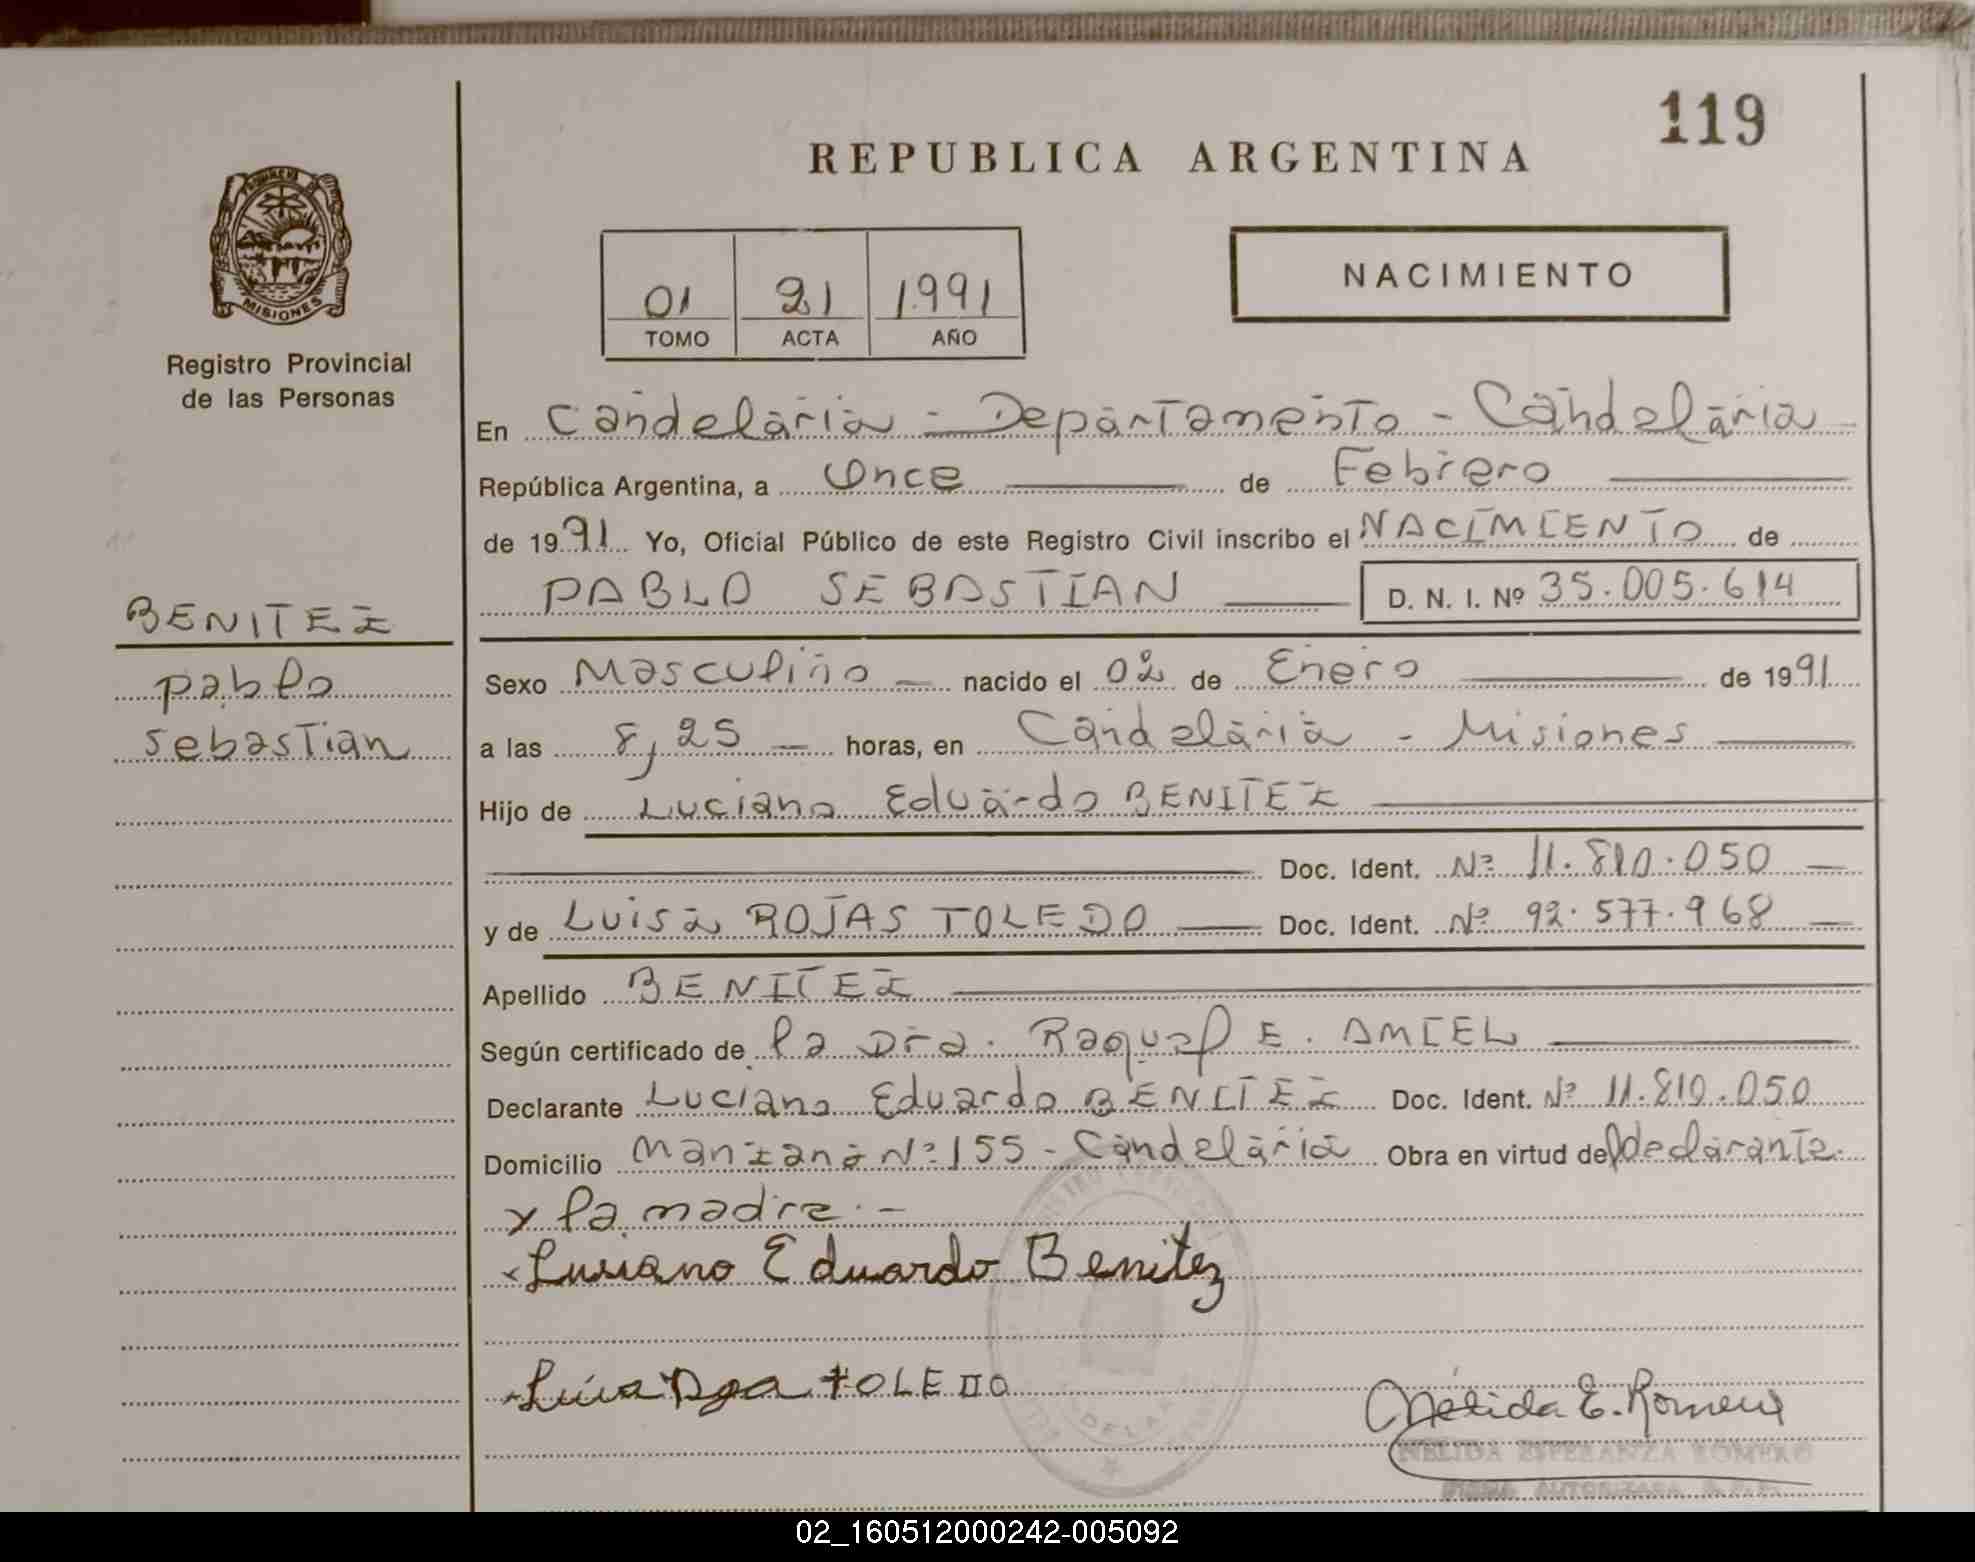 119
REPUBLICA ARGENTINA
PROVINCIA DE
MISIONES
Registro Provincial
de las Personas
01 21 1991
TOMO ACTA AÑO
NACIMIENTO
En Candelaria - Departamento - Candelaria
República Argentina, a Once de Febrero
de 1991 Yo, Oficial Público de este Registro Civil inscribo el NACIMIENTO de
PABLO SEBASTIAN D. N. I. Nº 35.005.614
BENITEZ
Pablo
Sebastian
Sexo Masculino nacido el 02 de Enero de 1991
a las 8,25 horas, en Candelaria - Misiones
Hijo de Luciano Eduardo BENITEZ
Doc. Ident. Nº 11.810.050
y de LUISA ROJAS TOLEDO Doc. Ident. Nº 92.577.968
Apellido BENITEZ
Según certificado de la Dra. Raquel E. AMIEL
Declarante Luciano Eduardo BENITEZ Doc. Ident. Nº 11.810.050
Domicilio Manzana Nº 155 - Candelaria Obra en virtud del declarante
y la madre.-
Lusiano Eduardo Benitez
TOLEDO
Nélida E. Romero
NELIDA ESPERANZA ROMERO
FIRMA AUTORIZADA
02_160512000242-005092